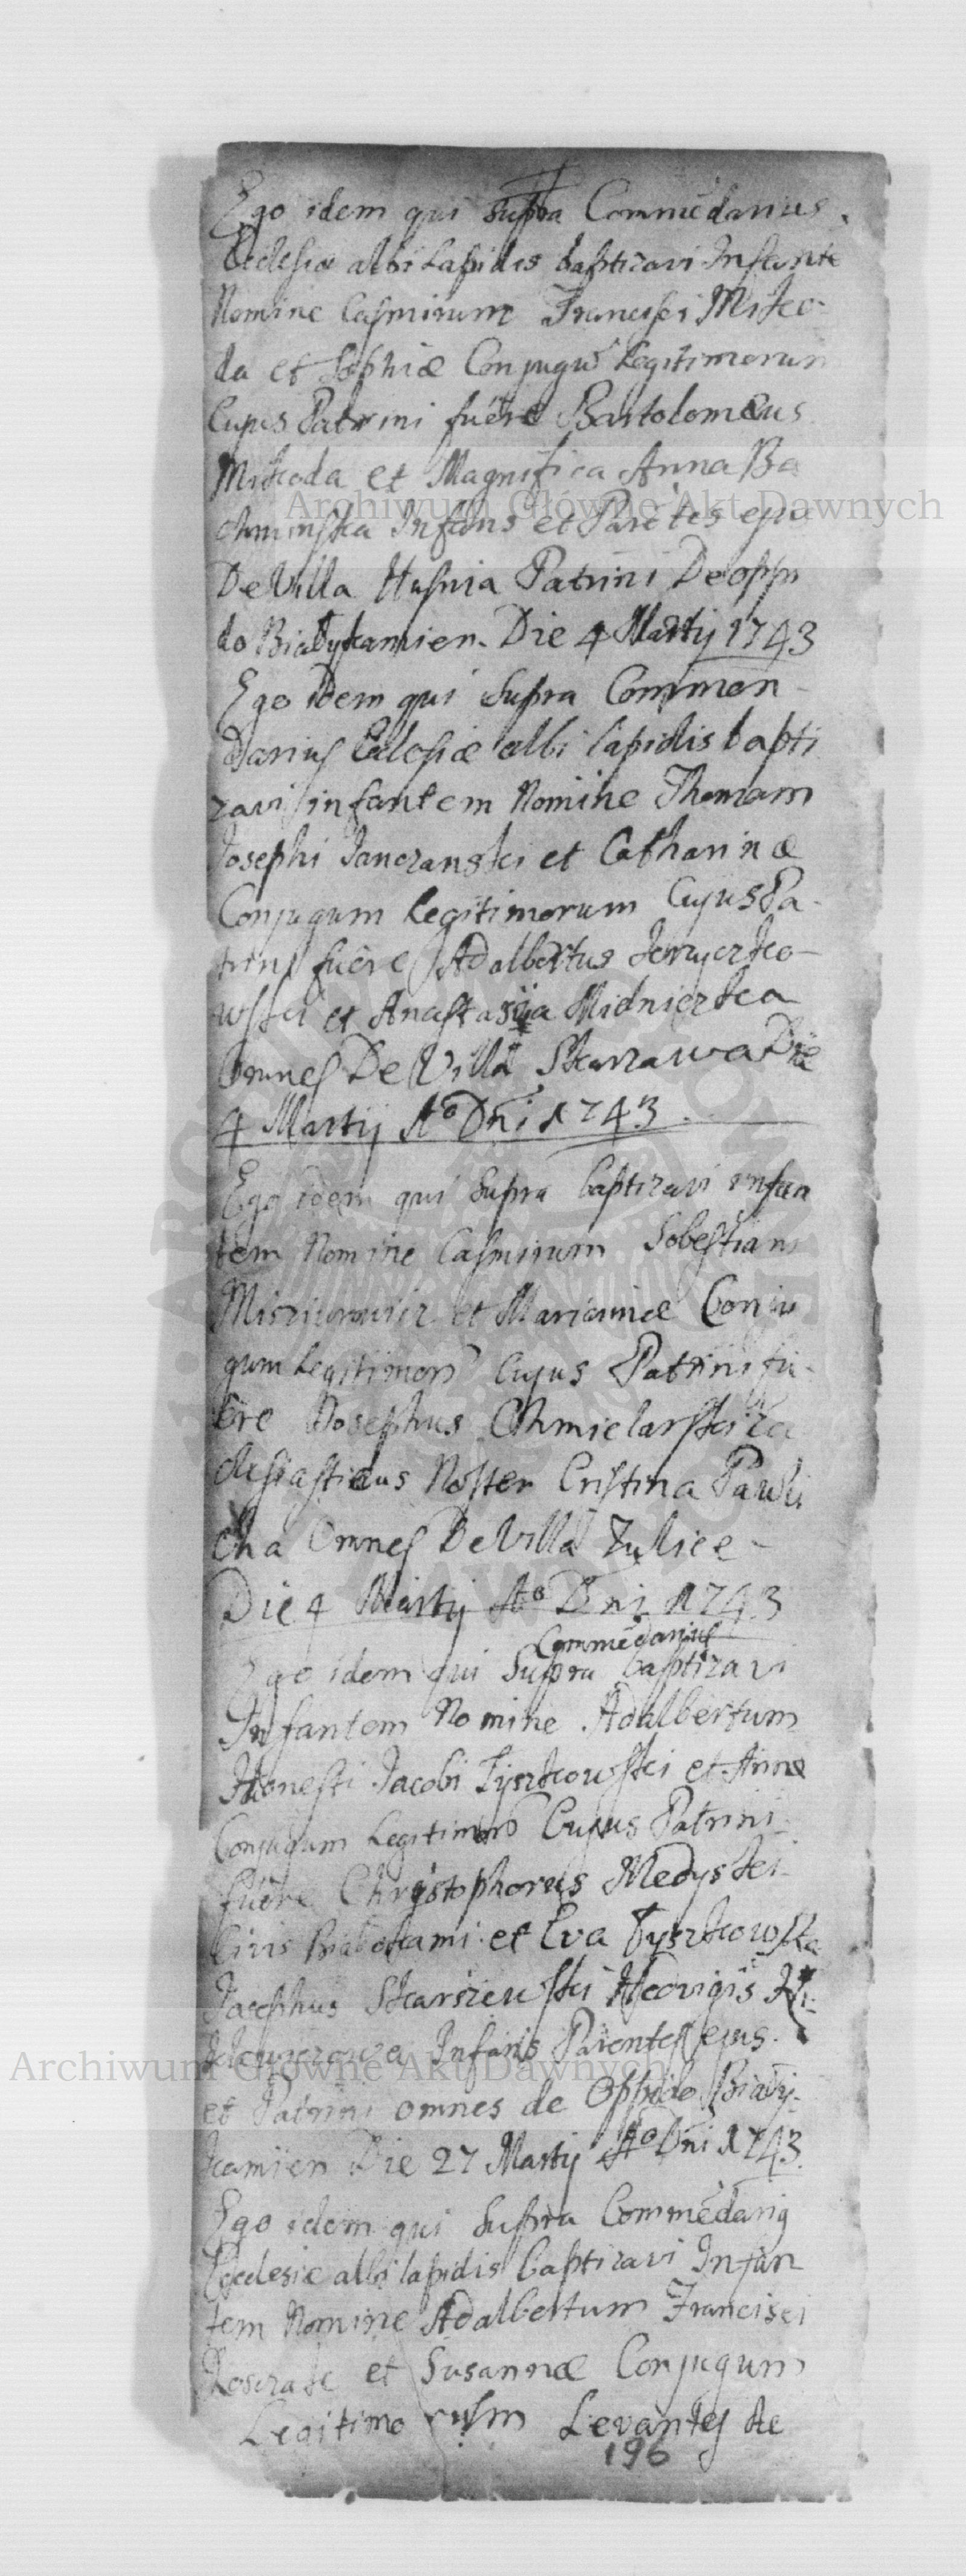 Ego idem qui supra Commēdarius
Ecclesiæ albi Lapidis baptizavi Infante
Nomine Casmirum Francisci Mitko-
da et Sophiæ Conjugū Legitimorum
Cujus Patrini fuêre Bartolomæus
Mitkoda et Magnifica Anna Ba
chminska Infans et Parētes ejus
De Villa Husnia Patrini De oppi
do Białykamien. Die 4 Martij 1743
Ego idem qui supra Commen-
darius Eclesiæ albi lapidis bapti
zavi infantem Nomine Thomam
Josephi Janczanski et Catharinæ
Conjugum Legitimorum Cujus Pa-
trini fuêre Adalbertus
wski et Anastasija Midniczka
Omnes De Villa Skwarzawa Die
4 Martij Aº Dni 1743.
Ego idem qui supra baptizavi infan
tem Nomine Casmirum Sobestiani
et Mariannæ Conju
gum Legitimorū Cujus Patrini fu-
êre Josephus Chmielarski Ec
clesiasticus Noster Cristina Pawli
cha Omnes De Villa Zulice-
Die 4 Martij Aº Dni 1743
Commēdarius
Ego idem qui supra baptizavi
Infantem Nomine Adalbertum
Honesti Jacobi Tyszkowski et Annæ
Conjugum Legitimorū Cujus Patrini
fuêre Chrystophorus Medyski
Civis Białokami. et Eva Tyszkowska
Josephus Skarszewski Hedvigis
Infans Parentes ejus.
et Patrini omnes de Oppido Biały-
kamien Die 27 Martij Aº Dni 1743.
Ego idem qui supra Commēdarius
Ecclesiæ albi lapidis baptizavi Infan
tem Nomine Adalbertum Francisci
et Susannæ Conjugum
Legitimorum Levantes de
196
Archiwum Główne Akt Dawnych
Archiwum Główne Akt Dawnych